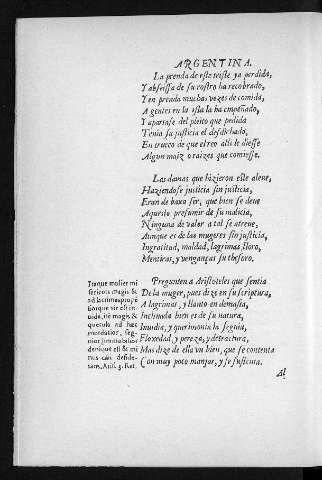 ARGENTINA.
La prenda de este triste ya perdida,
Y abseissa de su rostro ha recobrado,
Y en preado muchas vezes de comida,
A gentes en la isla la ha empeñado,
Y apartase del pleito que pedida
Tenia su justicia el desdichado,
En trueco de que el reo alli le diesse
Algun maiz o raizes que comiesse.
Las damas que hizieron este aleue,
Haziendose justicia sin justicia,
Eran de baxo ser, que bien se deue
Aquesto presumir de su malicia,
Ninguna de valor a tal se atreue,
Aunque es de las mugeres sin justicia,
Ingratitud, maldad, lagrimas, lloro,
Mentiras, y venganças su thesoro.
Pregunten a Aristoteles que sentia
De la muger, pues dize en su scriptura,
A lagrimas, y llanto en demasia,
Inclinada bien es de su natura,
Inuidia, y querimonia la seguia,
Floxedad, y pereza, y detractura,
Mas dize de ella vn bien, que se contenta
Con muy poco manjar, y se sustenta.
Itaque mulier mi
sericors magis &
ad lacrimas prope
ro magis &
querula ad hæc
mordatior, seg-
nior immobilior
denique est & mi
nus cibi deside-
rans, Arist. 3. Rat.
Al